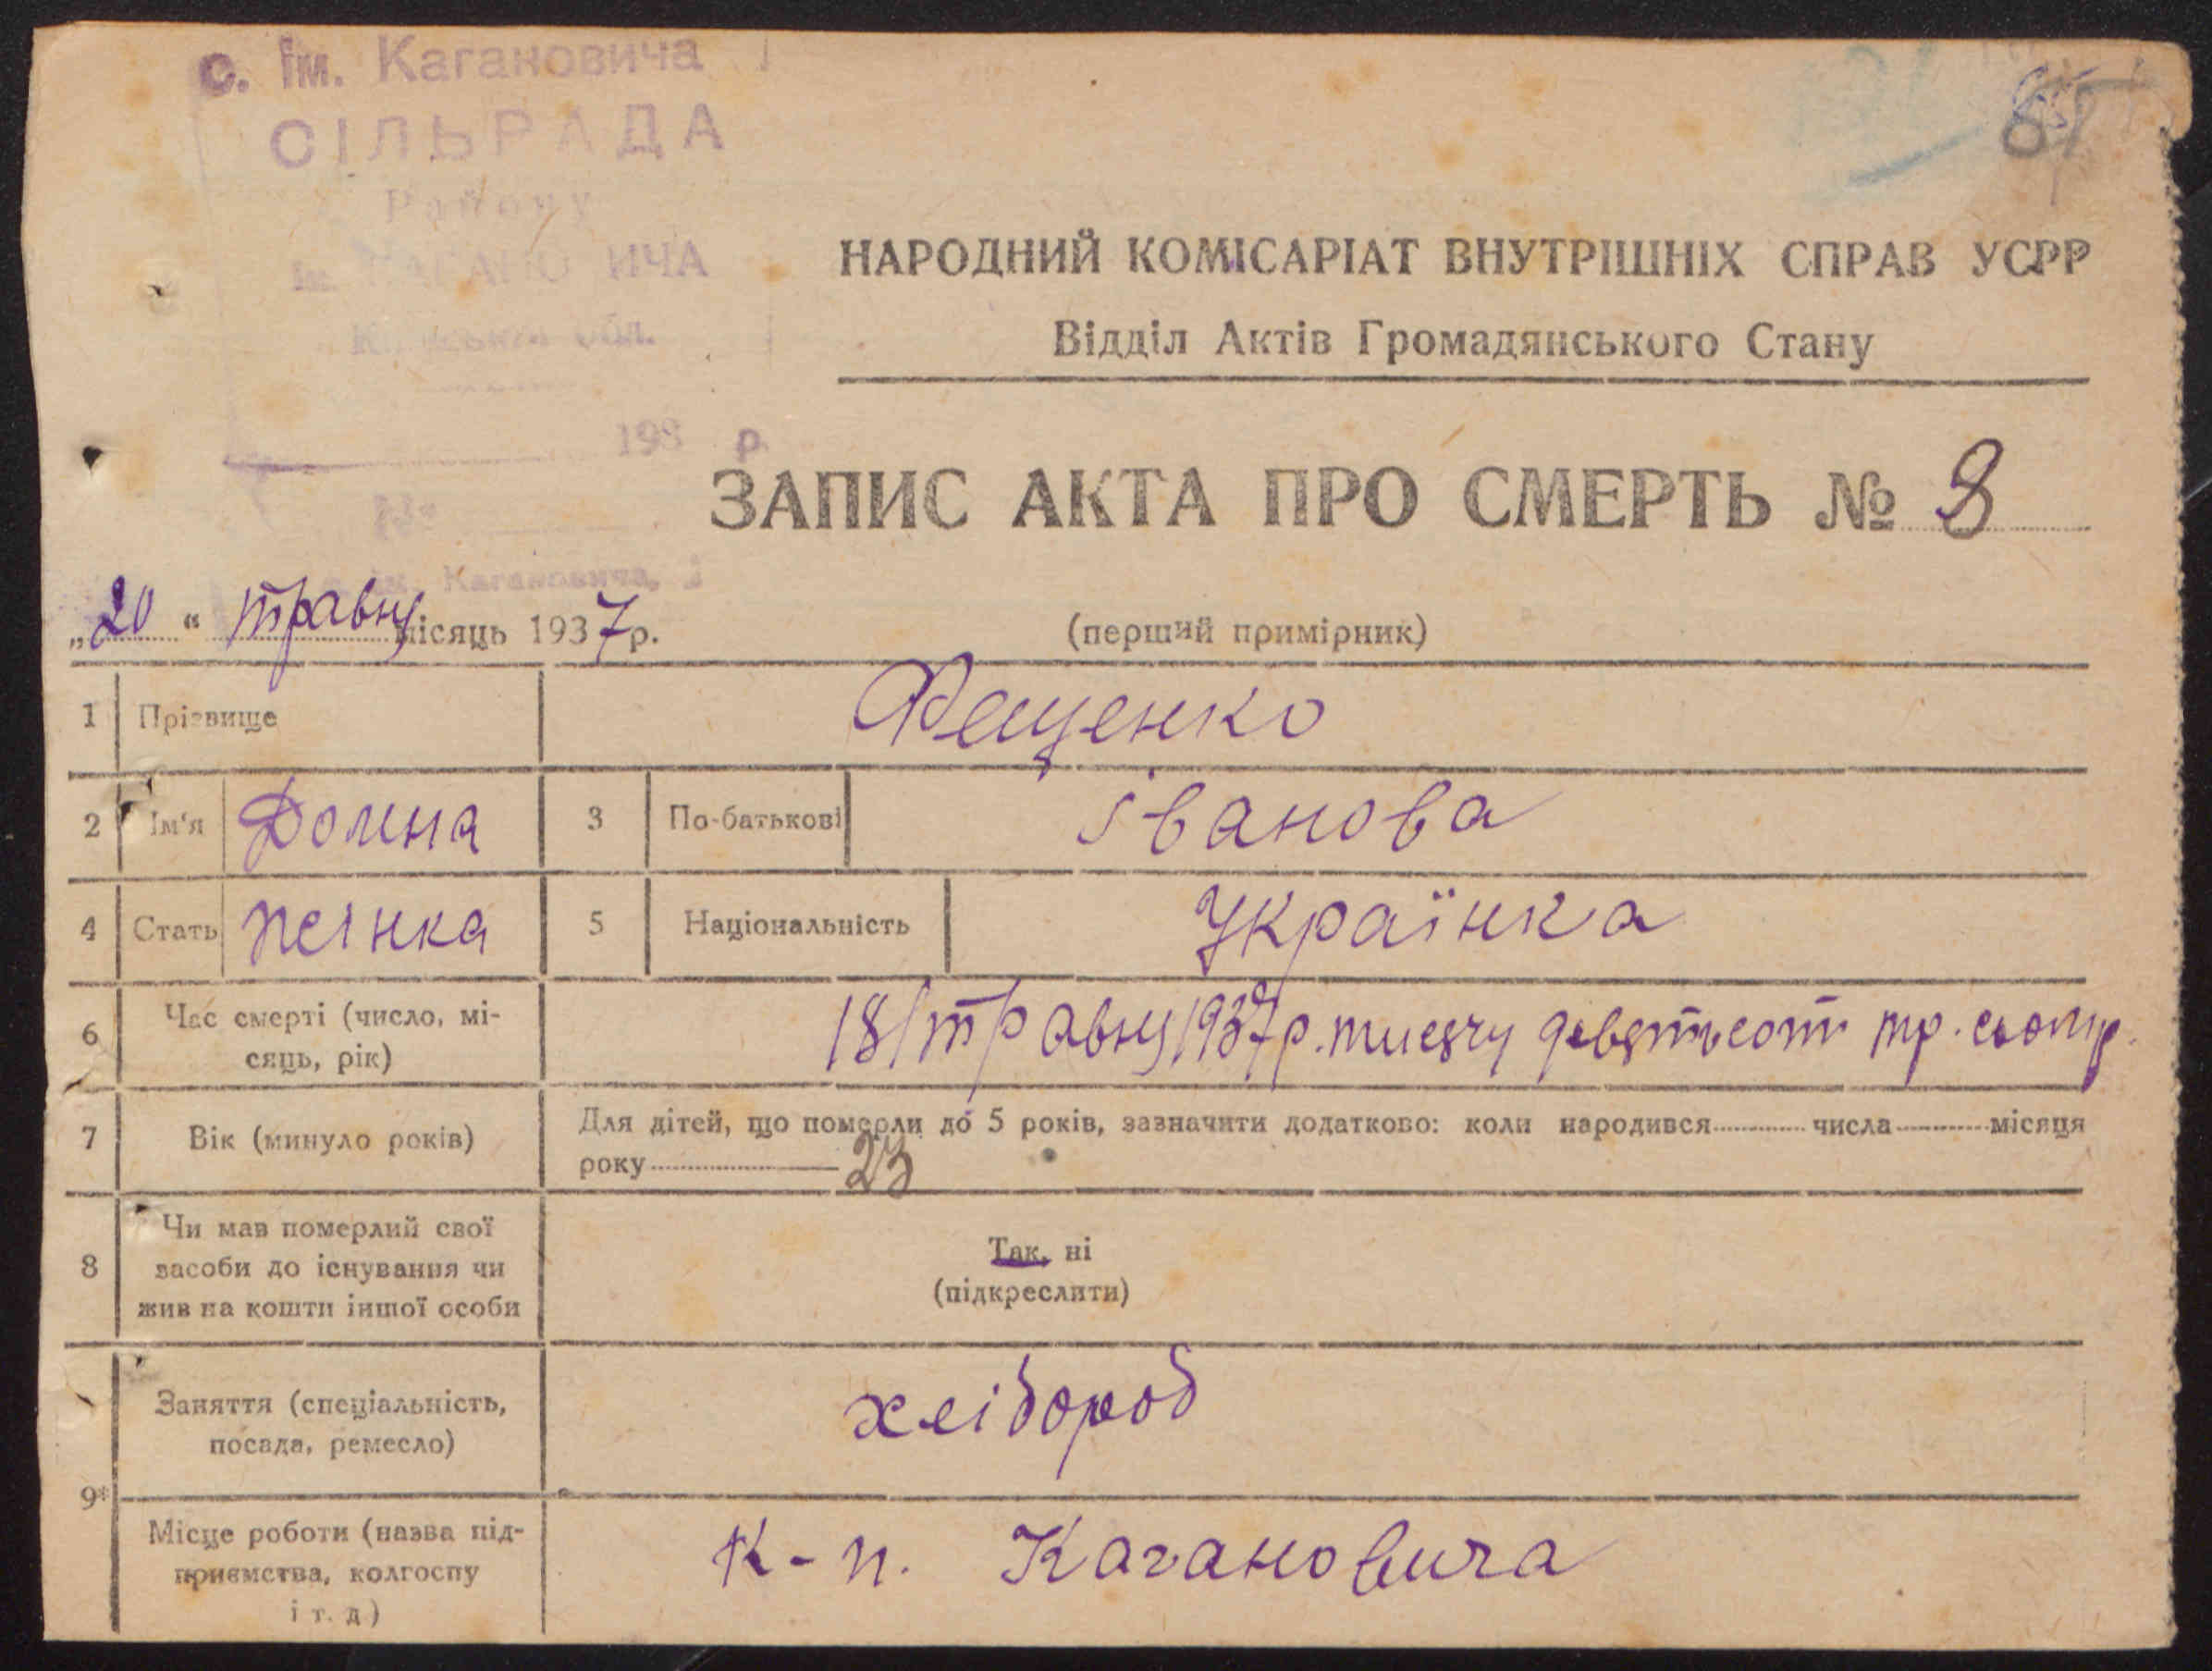 с. ім. Кагановича
СІЛЬРАДА
Району
193 р.
№
НАРОДНИЙ КОМІСАРІАТ ВНУТРІШНІХ СПРАВ УСРР
Відділ Актів Громадянського Стану
ЗАПИС АКТА ПРО СМЕРТЬ № 8
„20“ травня місяць 1937 р.
(перший примірник)
1 Прізвище Фещенко
2 Ім'я Домна 3 По-батькові Іванова
4 Стать жінка 5 Національність Українка
6 Час смерті (число, мі-
сяць, рік)
18/травня 1937 р.
7 Вік (минуло років)
Для дітей, що померли до 5 років, зазначити додатково: коли народився числа місяця
року 23
8 Чи мав померлий свої
засоби до існування чи
жив на кошти іншої особи
Так, ні
(підкреслити)
9* Заняття (спеціальність,
посада, ремесло)
хлібороб
Місце роботи (назва під-
приємства, колгоспу
і т. д)
К-п. Кагановича